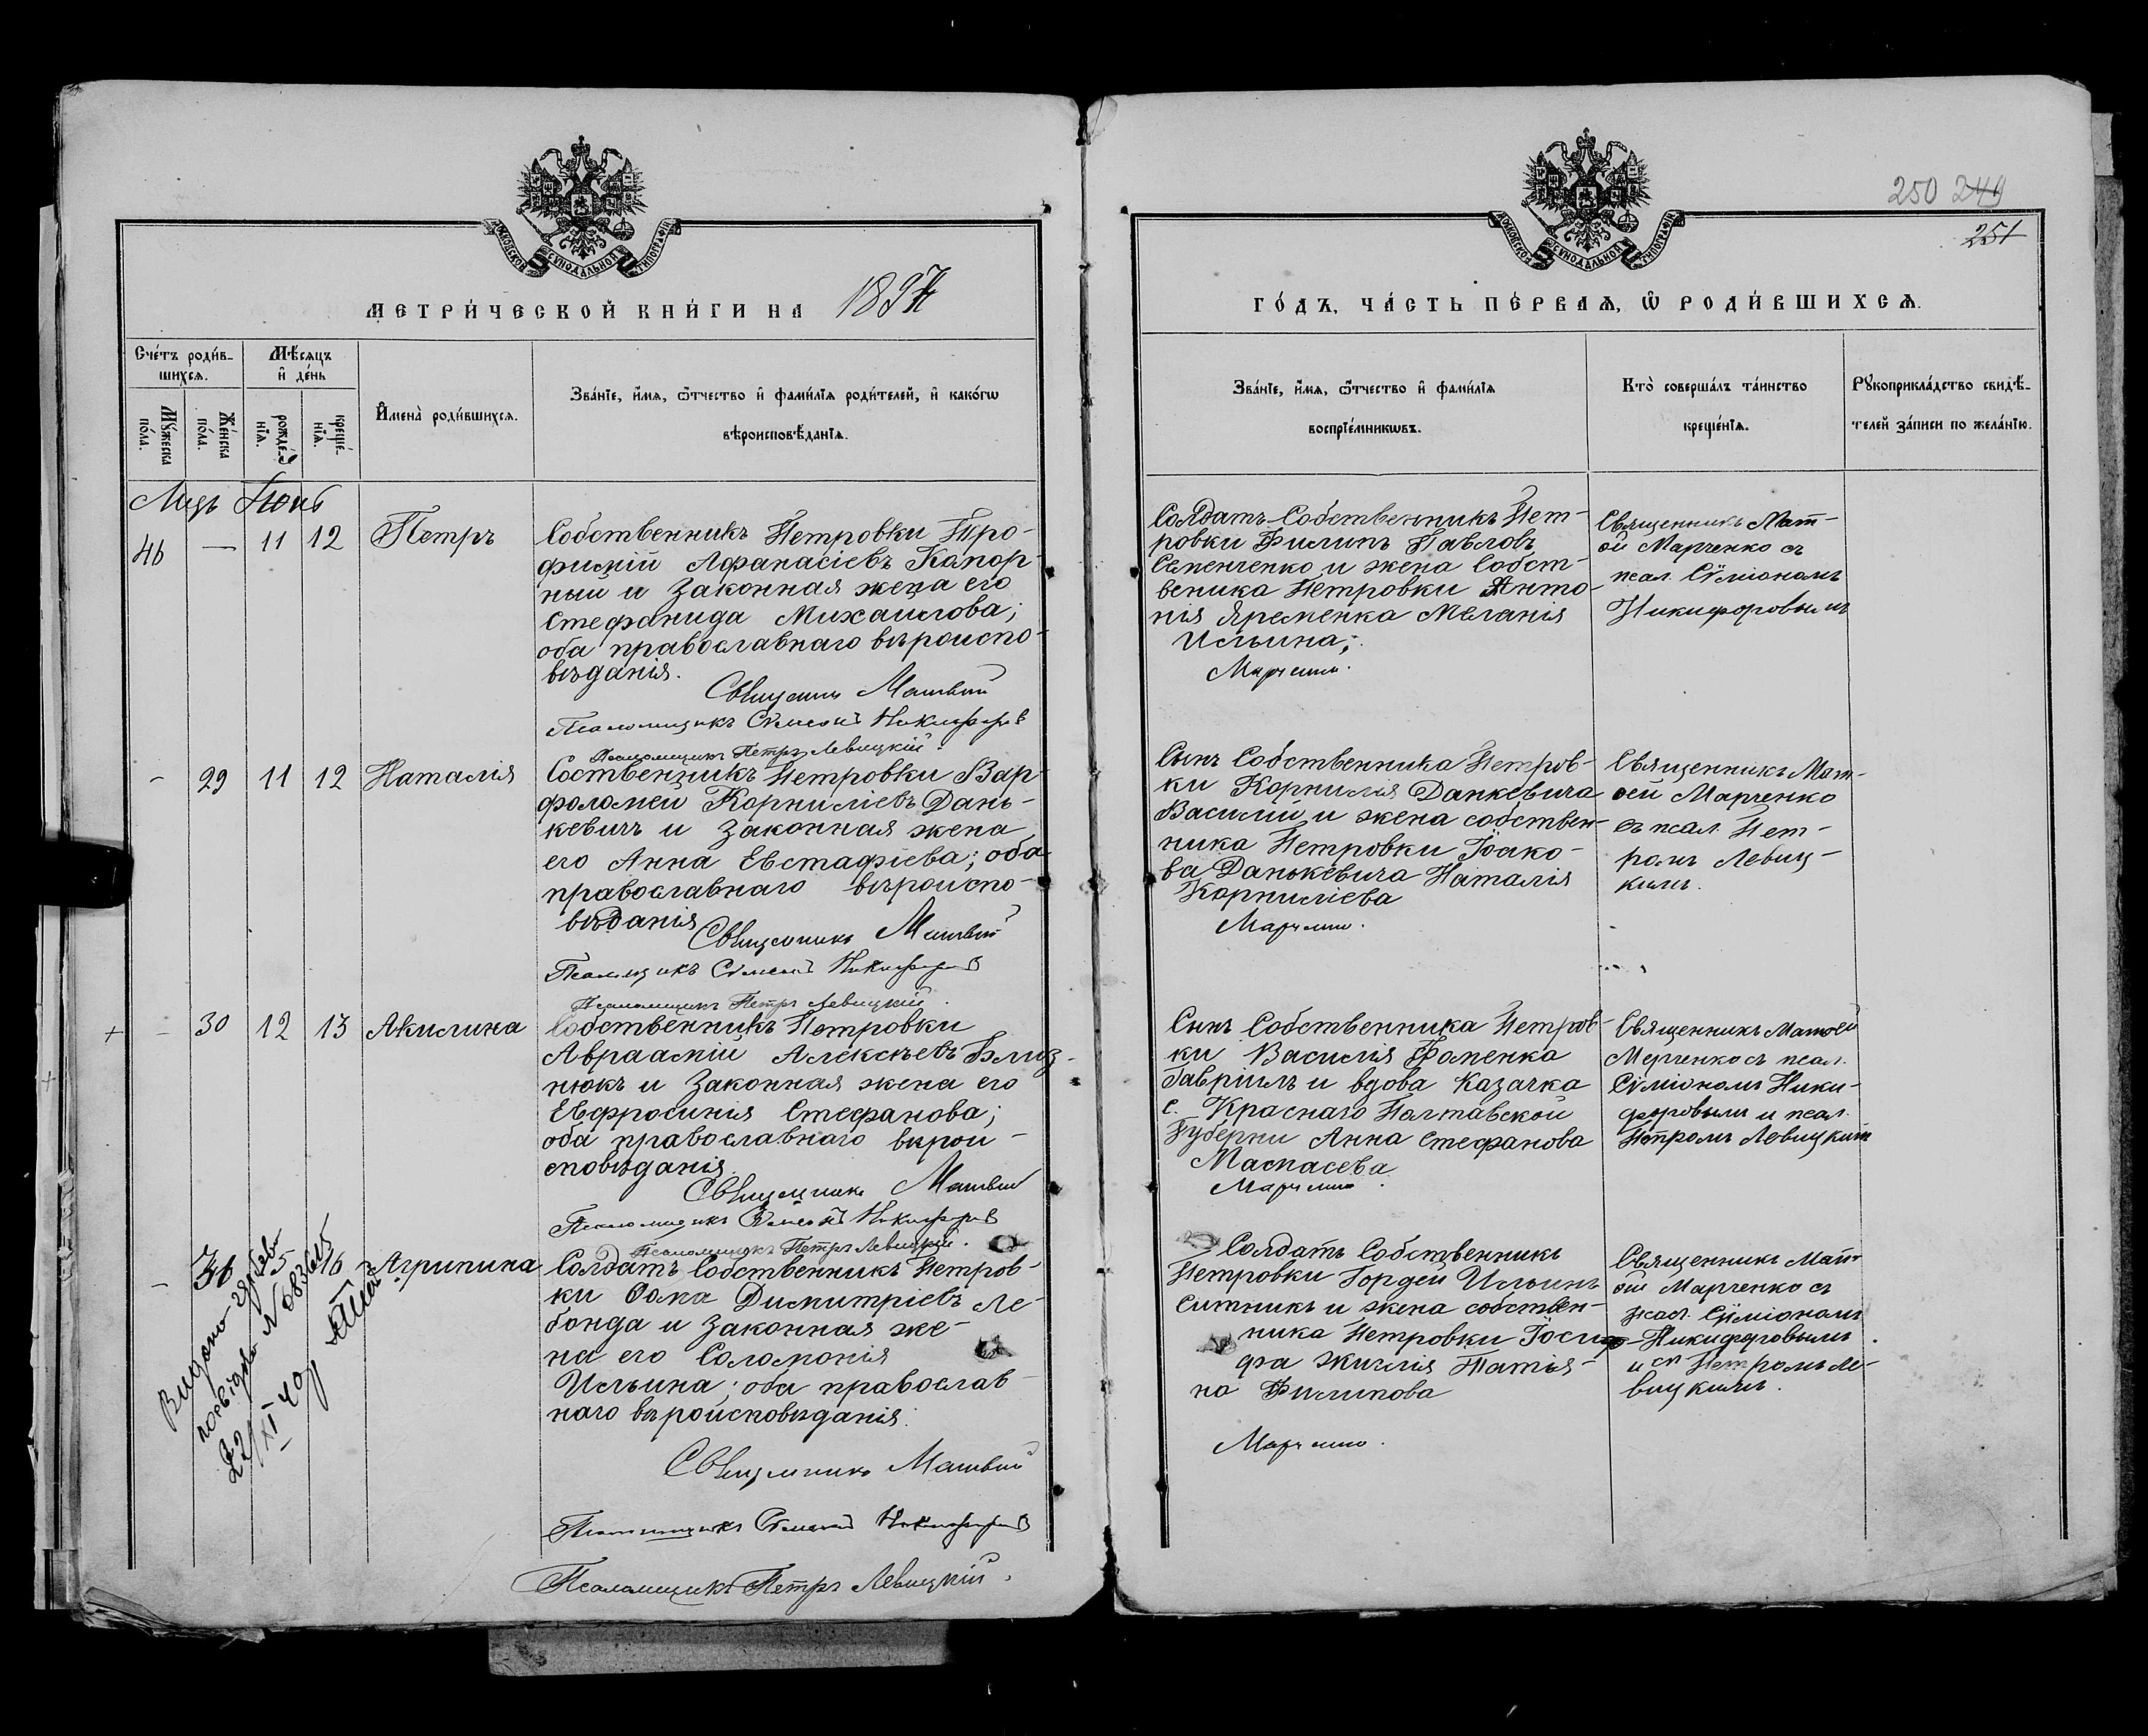 МОСКОВСКОЙ СѴНОДАЛЬНОЙ ТИПОГРАФІИ
МЕТРИ́ЧЕСКОЙ КНИ́ГИ НА 1897
Сче́тъ роди́в-
шихсѧ.
Мѣ́сѧцъ
и҆ де́нь
Мꙋ́жеска
по́ла.
Же́нска
по́ла.
рожде́-
нїѧ.
креще́-
нїѧ.
И҆мена̀ роди́вшихсѧ.
Зва́нїе, и҆́мѧ, ѻ҆́тчество и҆ фами́лїѧ роди́телей, и҆ како́гѡ
вѣроисповѣ́данїѧ.
Мцъ Іюнь
46 — 11 12 Петръ
Собственникъ Петровки Тро-
фимій Афанасіевъ Капор-
ный и законная жена его
Стефанида Михаилова;
оба православнаго вѣроиспо-
вѣданія.
Священникъ Матвій
Псаломщикъ Сѵмеонъ Никифоровъ
Псаломщикъ Петръ Левицкій.
- 29 11 12 Наталія
Соственникъ Петровки Вар-
фоломей Корниліевъ Дань-
кевичъ и законная жена
его Анна Евстафіева; оба
православнаго вѣроиспо-
вѣданія
Священникъ Матвій
Псаломщикъ Сѵмеонъ Никифоровъ
Псаломщикъ Петръ Левицкій.
+ - 30 12 13 Акилина
Собственникъ Петровки
Авраамій Алексѣевъ Близ-
нюкъ и законная жена его
Евфросинія Стефанова;
оба православнаго вѣрои-
сповѣданія.
Священникъ Матвій
Псаломщикъ Сѵмеонъ Никифоровъ
Псаломщикъ Петръ Левицкій.
- 31 15 16 Агрипина
Солдатъ Собственникъ Петров-
ки Ѳома Димитріевъ Ле-
бонда и законная же-
на его Соломонія
Ильина; оба православ-
наго вѣроисповѣданія.
Видано
22/XI 40
Священникъ Матвій
Псаломщикъ Сѵмеонъ Никифоровъ
Псаломщикъ Петръ Левицкій.
250 249
251
МОСКОВСКОЙ СѴНОДАЛЬНОЙ ТИПОГРАФІИ
ГО́ДЪ, ЧА́СТЬ ПЕ́РВАѦ, Ѿ РОДИ́ВШИХСѦ.
Зва́нїе, и҆́мѧ, ѻ҆́тчество и҆ фами́лїѧ
воспрїе́мникѡвъ.
Кто̀ соверша́лъ та́инство
креще́нїѧ.
Рꙋкоприкла́дство свидѣ́-
телей за́писи по жела́нїю.
Солдатъ Собственникъ Пет-
ровки Филипъ Павловъ
Семенченко и жена Собст-
веника Петровки Анто-
нія Яременка Меланія
Ильина;
Марченко.
Священникъ Мат-
ѳей Марченко съ
псал. Сѵміономъ
Никифоровымъ
Сынъ Собственника Петров-
ки Корнилія Данкевича
Василій и жена собствен-
ника Петровки Іоако-
ва Данькевича Наталія
Корниліева
Марченко.
Священникъ Мат-
ѳей Марченко
съ псал. Пет-
ромъ Левиц-
кимъ.
Сынъ Собственника Петров-
ки Василія Фоменка
Гавріилъ и вдова казачка
с. Краснаго Полтавской
Губерни Анна Стефанова
Марченко.
Священникъ Матѳей
Марченко съ псал.
Сѵміономъ Ники-
форовымъ и псал.
Петромъ Левицкимъ
Солдатъ Собственникъ
Петровки Гордей Ильинъ
Ситникъ и жена собствен-
ника Петровки Іоси-
фа Жигилія Татія-
на Филипова
Марченко.
Священникъ Мат-
ѳей Марченко съ
псал. Сѵміономъ
Никифоровымъ
и Петромъ Ле-
вицкимъ.